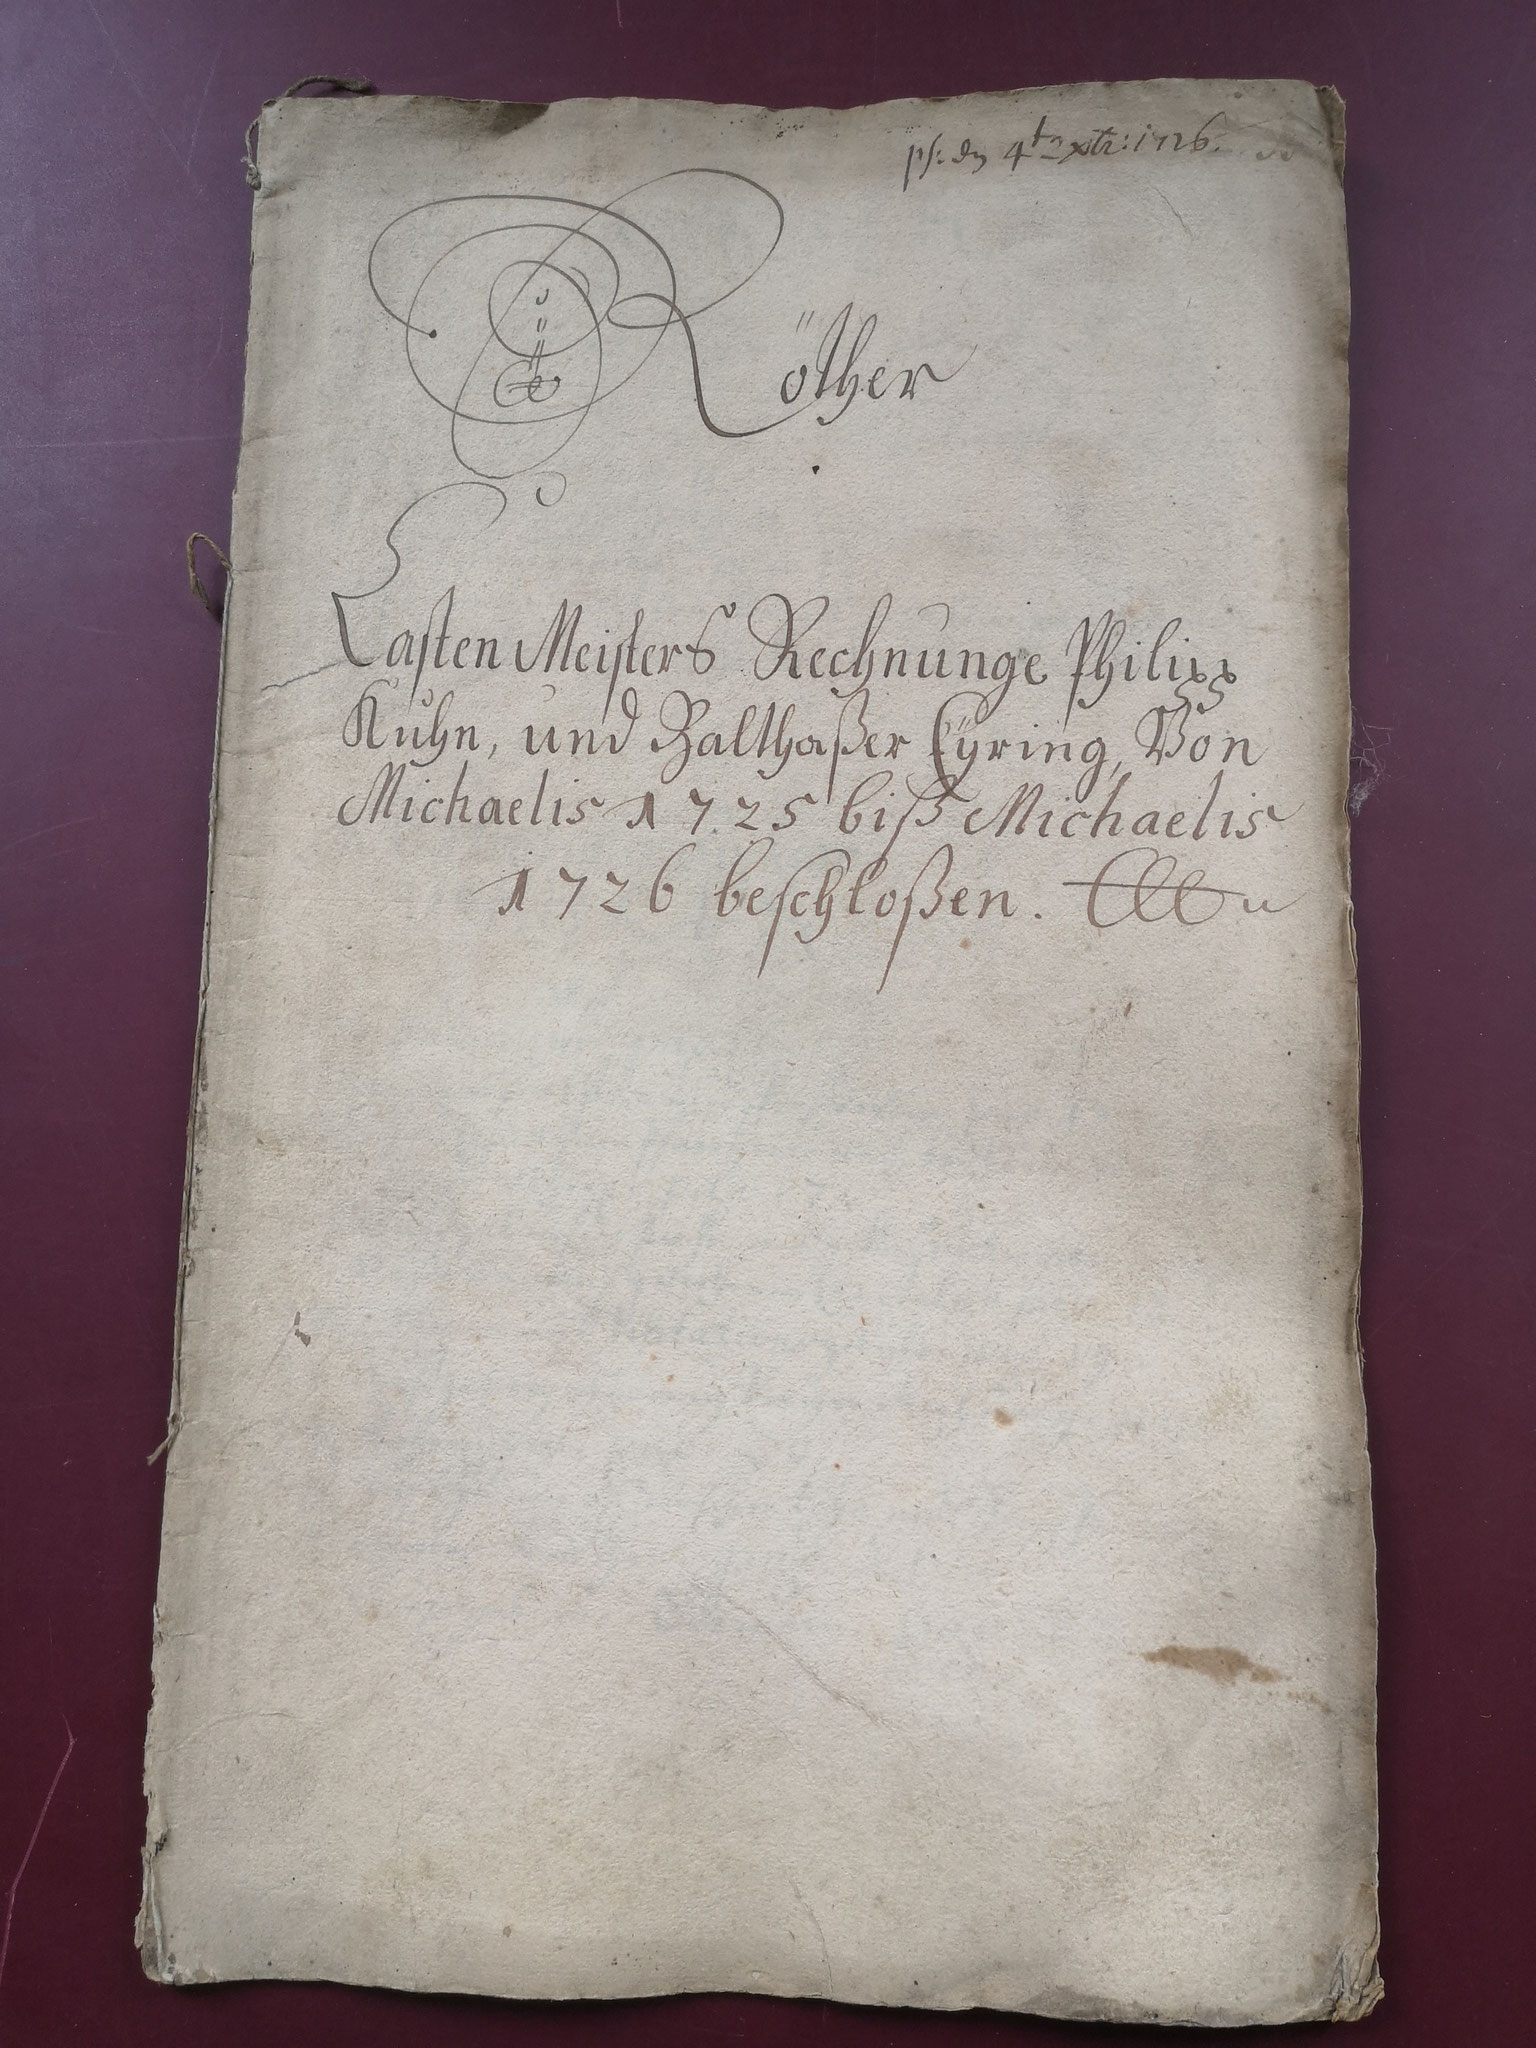 ps: dn 4tn xbr: 1726.
Röther
Casten Meisters Rechnunge Philipp
Kuhn, und Balthaßer Eÿring, Von
Michaelis 1725 biß Michaelis
1726 beschloßen.